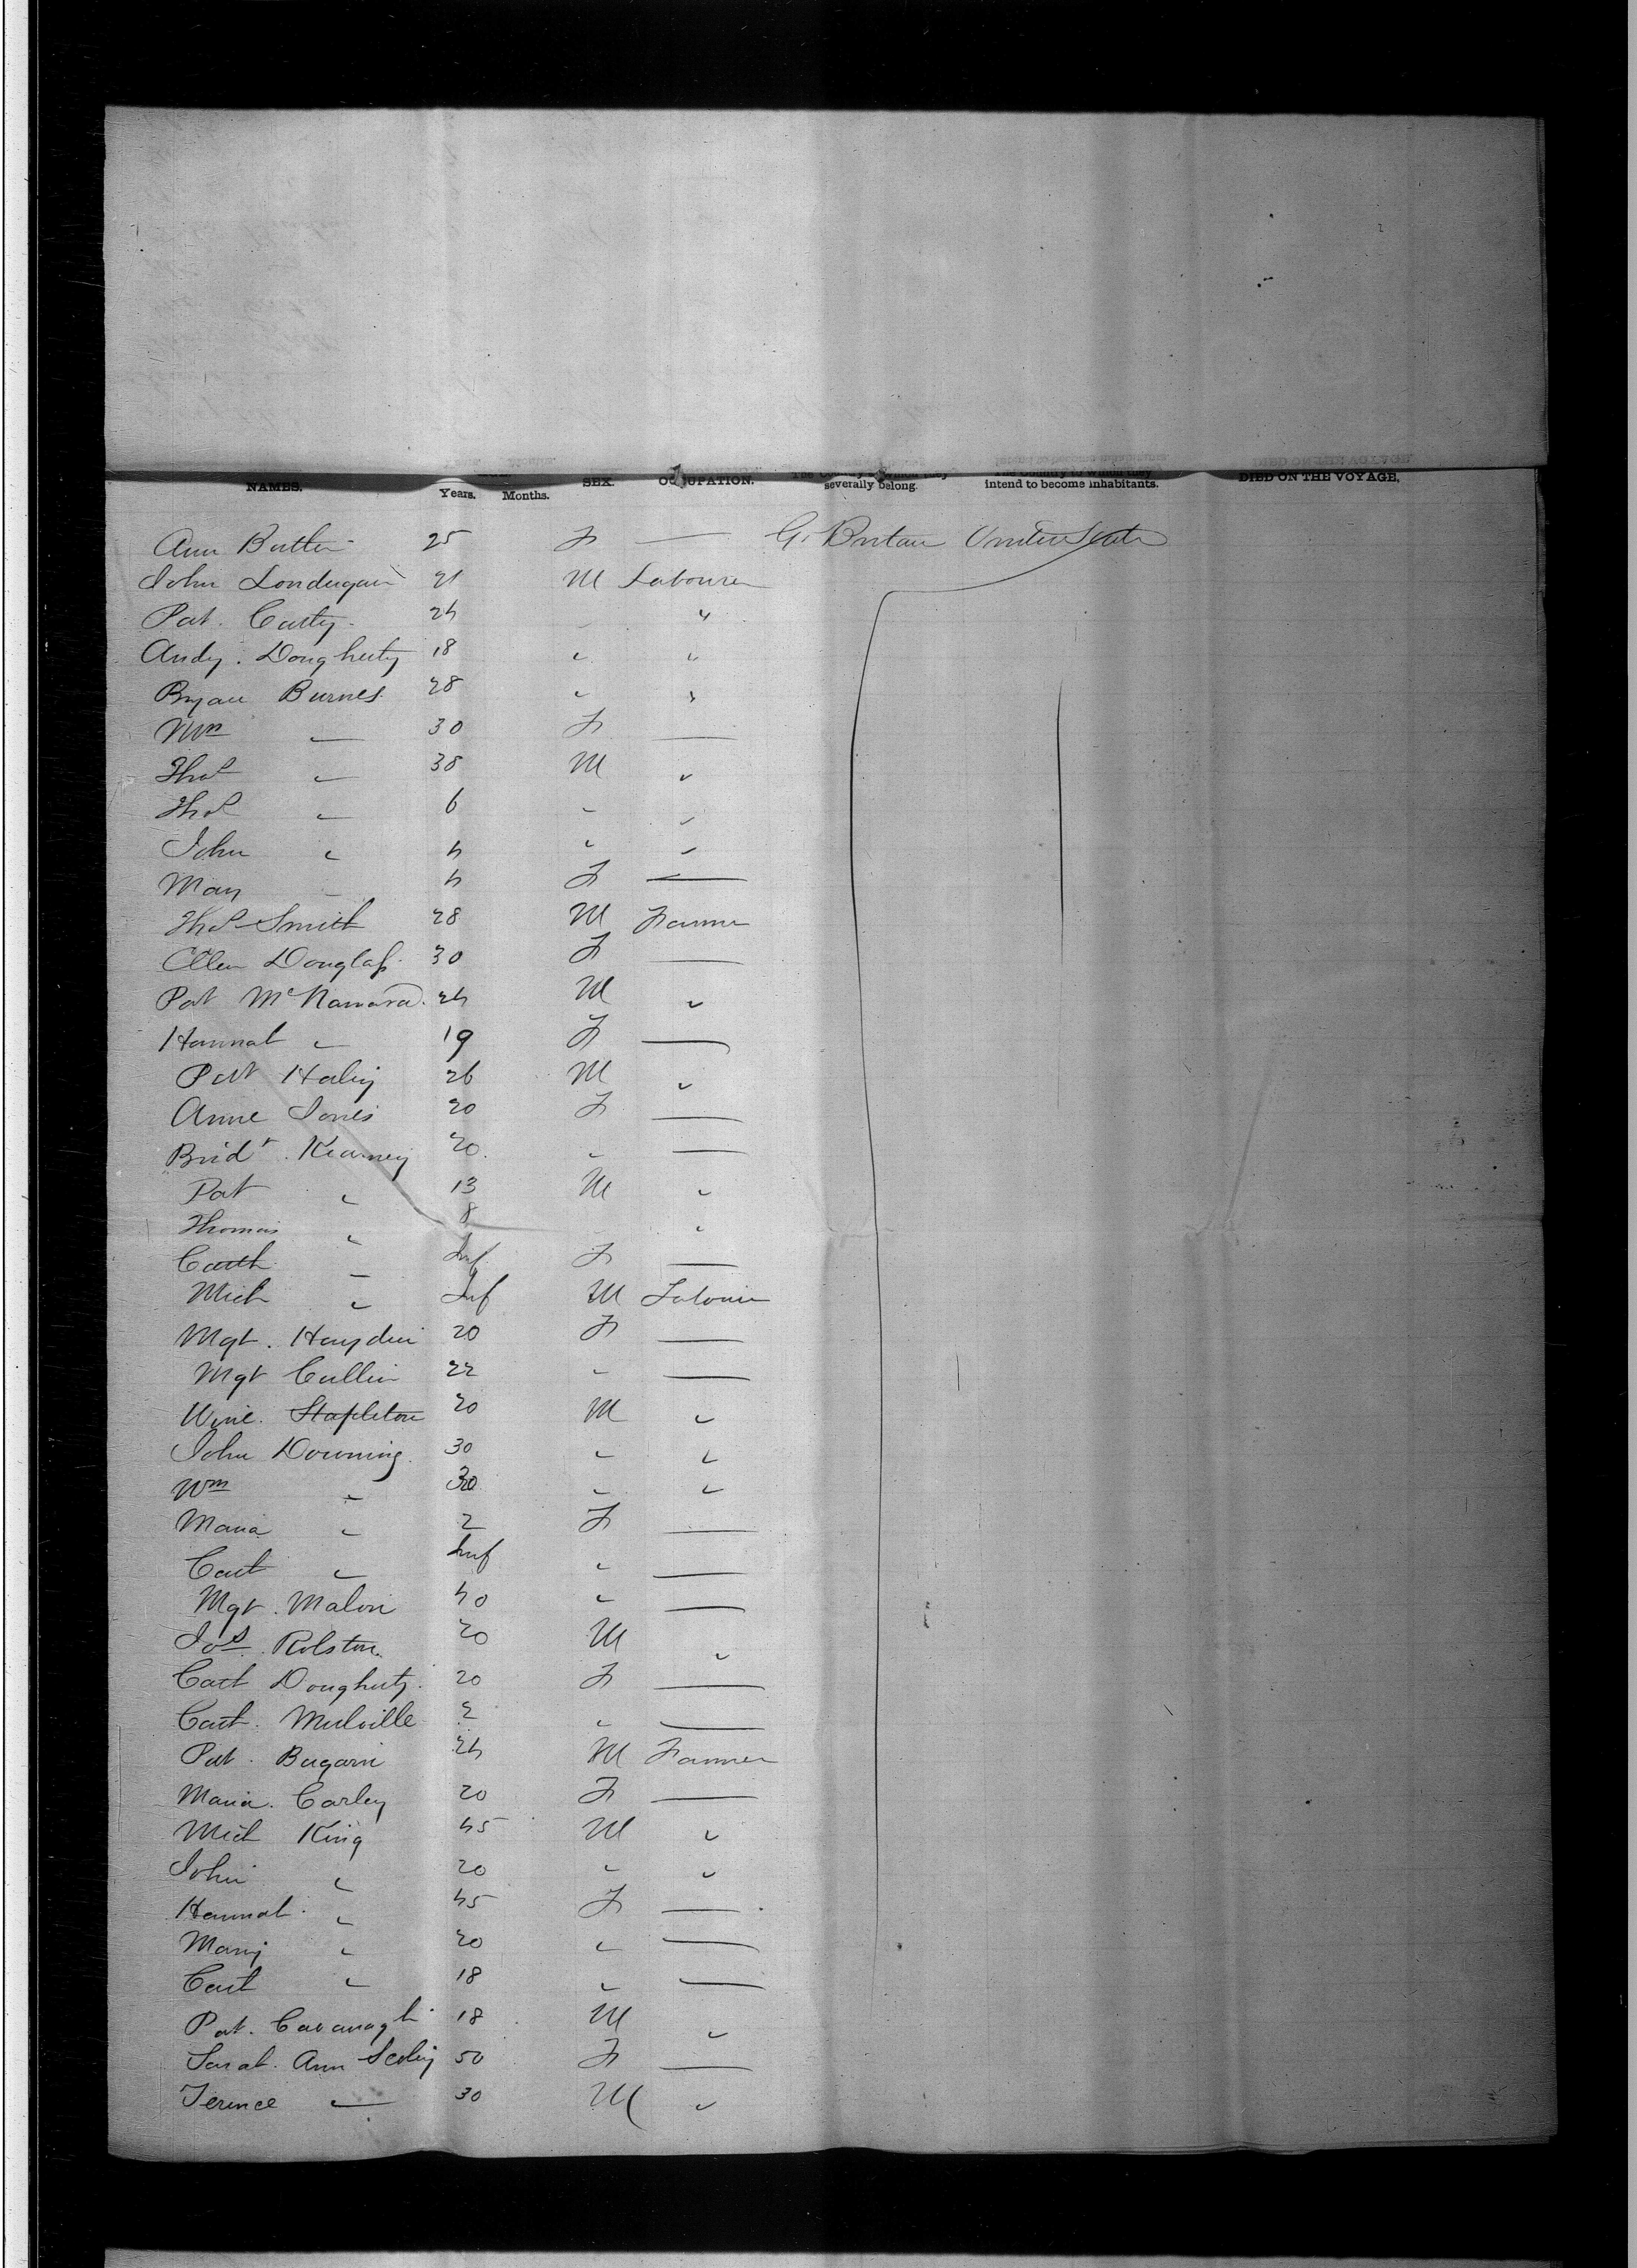 NAMES. Years. Months. SEX. OCCUPATION. severally belong. intend to become inhabitants. DIED ON THE VOYAGE.
Ann Butler 25 F — G. Britain United States
John Londregan 21 M Labourer
Pat. Carty 24 "
Andy. Dougherty 18 " "
Bryan Burnes 28 " "
30 F —
Thos " 38 M "
Thos " 6 " "
John " 4 " "
Mary " 4 F —
Thos Smith 28 M Farmer
Ellen Douglass 30 F —
Pat McNamara 24 M "
Hannah " 19 F —
Patk Haley 26 M "
Anne Jones 20 F —
Bridt. Kearney 20 " —
Pat " 13 M "
Thomas " 8 "
Cath " Inf F —
Mich " Inf M Labourer
Mgt. Hayden 20 F —
Mgt Cullen 22 " —
Stapleton 20 M "
John Downing 30 " "
Wm " 30 " "
Maria " 2 F —
Cath " Inf " —
Mgt. Malon 40 " —
Jos Rolston 20 M "
Cath Dougherty 20 F —
Cath. Mulville 2 " —
Pat. 24 M Farmer
Maria. Carley 20 F —
Mich King 45 M "
John " 20 " "
Hannah " 45 F —
Mary " 20 " —
Cath " 18 " —
Pat. Cavanagh 18 M "
Sarah Ann 50 F —
Terence " 30 M "